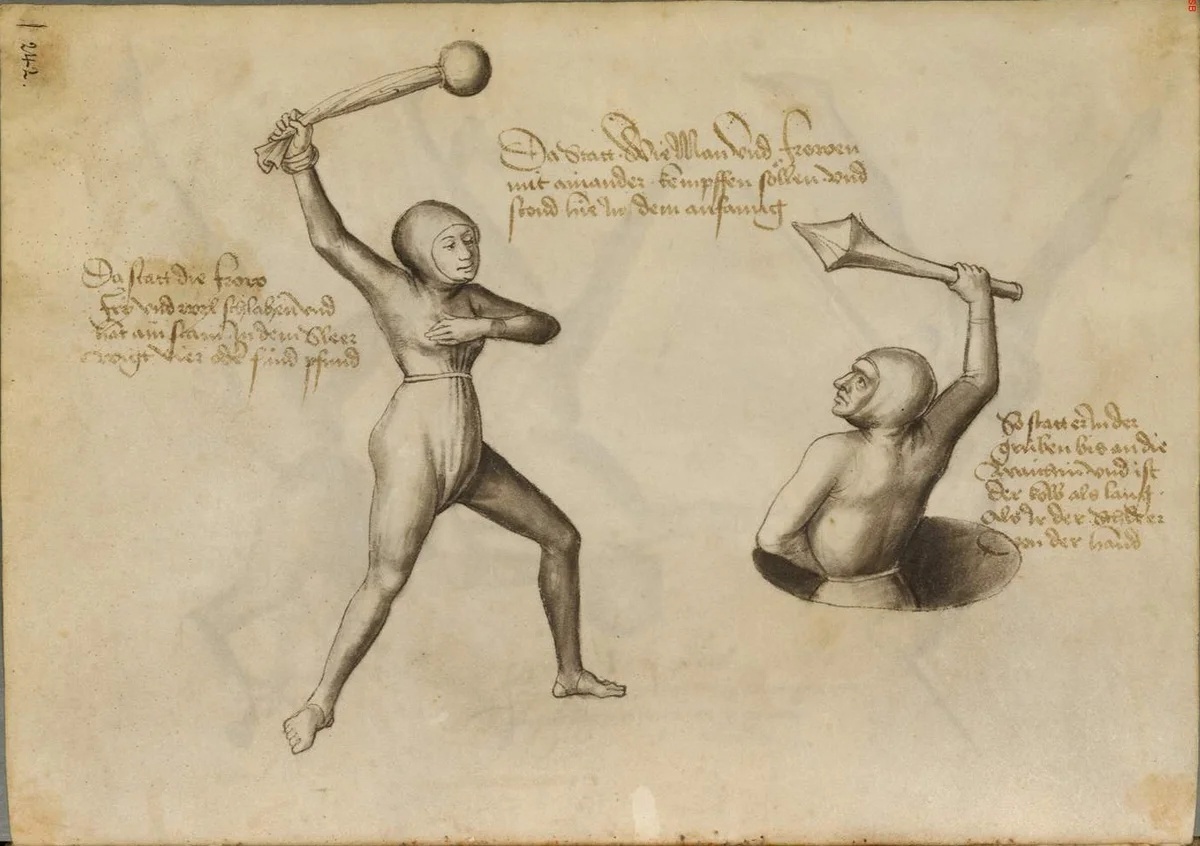 242.
Da Statt. Wie Man Und frowen
mit ainander kempffen söllen und
stond hie In dem anfanng
Da statt die frow
fry und wyl schlahen und
hät ain stain In dem Sleer
wigt vier oder fünd pfund
So statt er In der
gruben bis an die
waichin und ist
der kolb als lang
Als Ir der Schleer
von der hannd